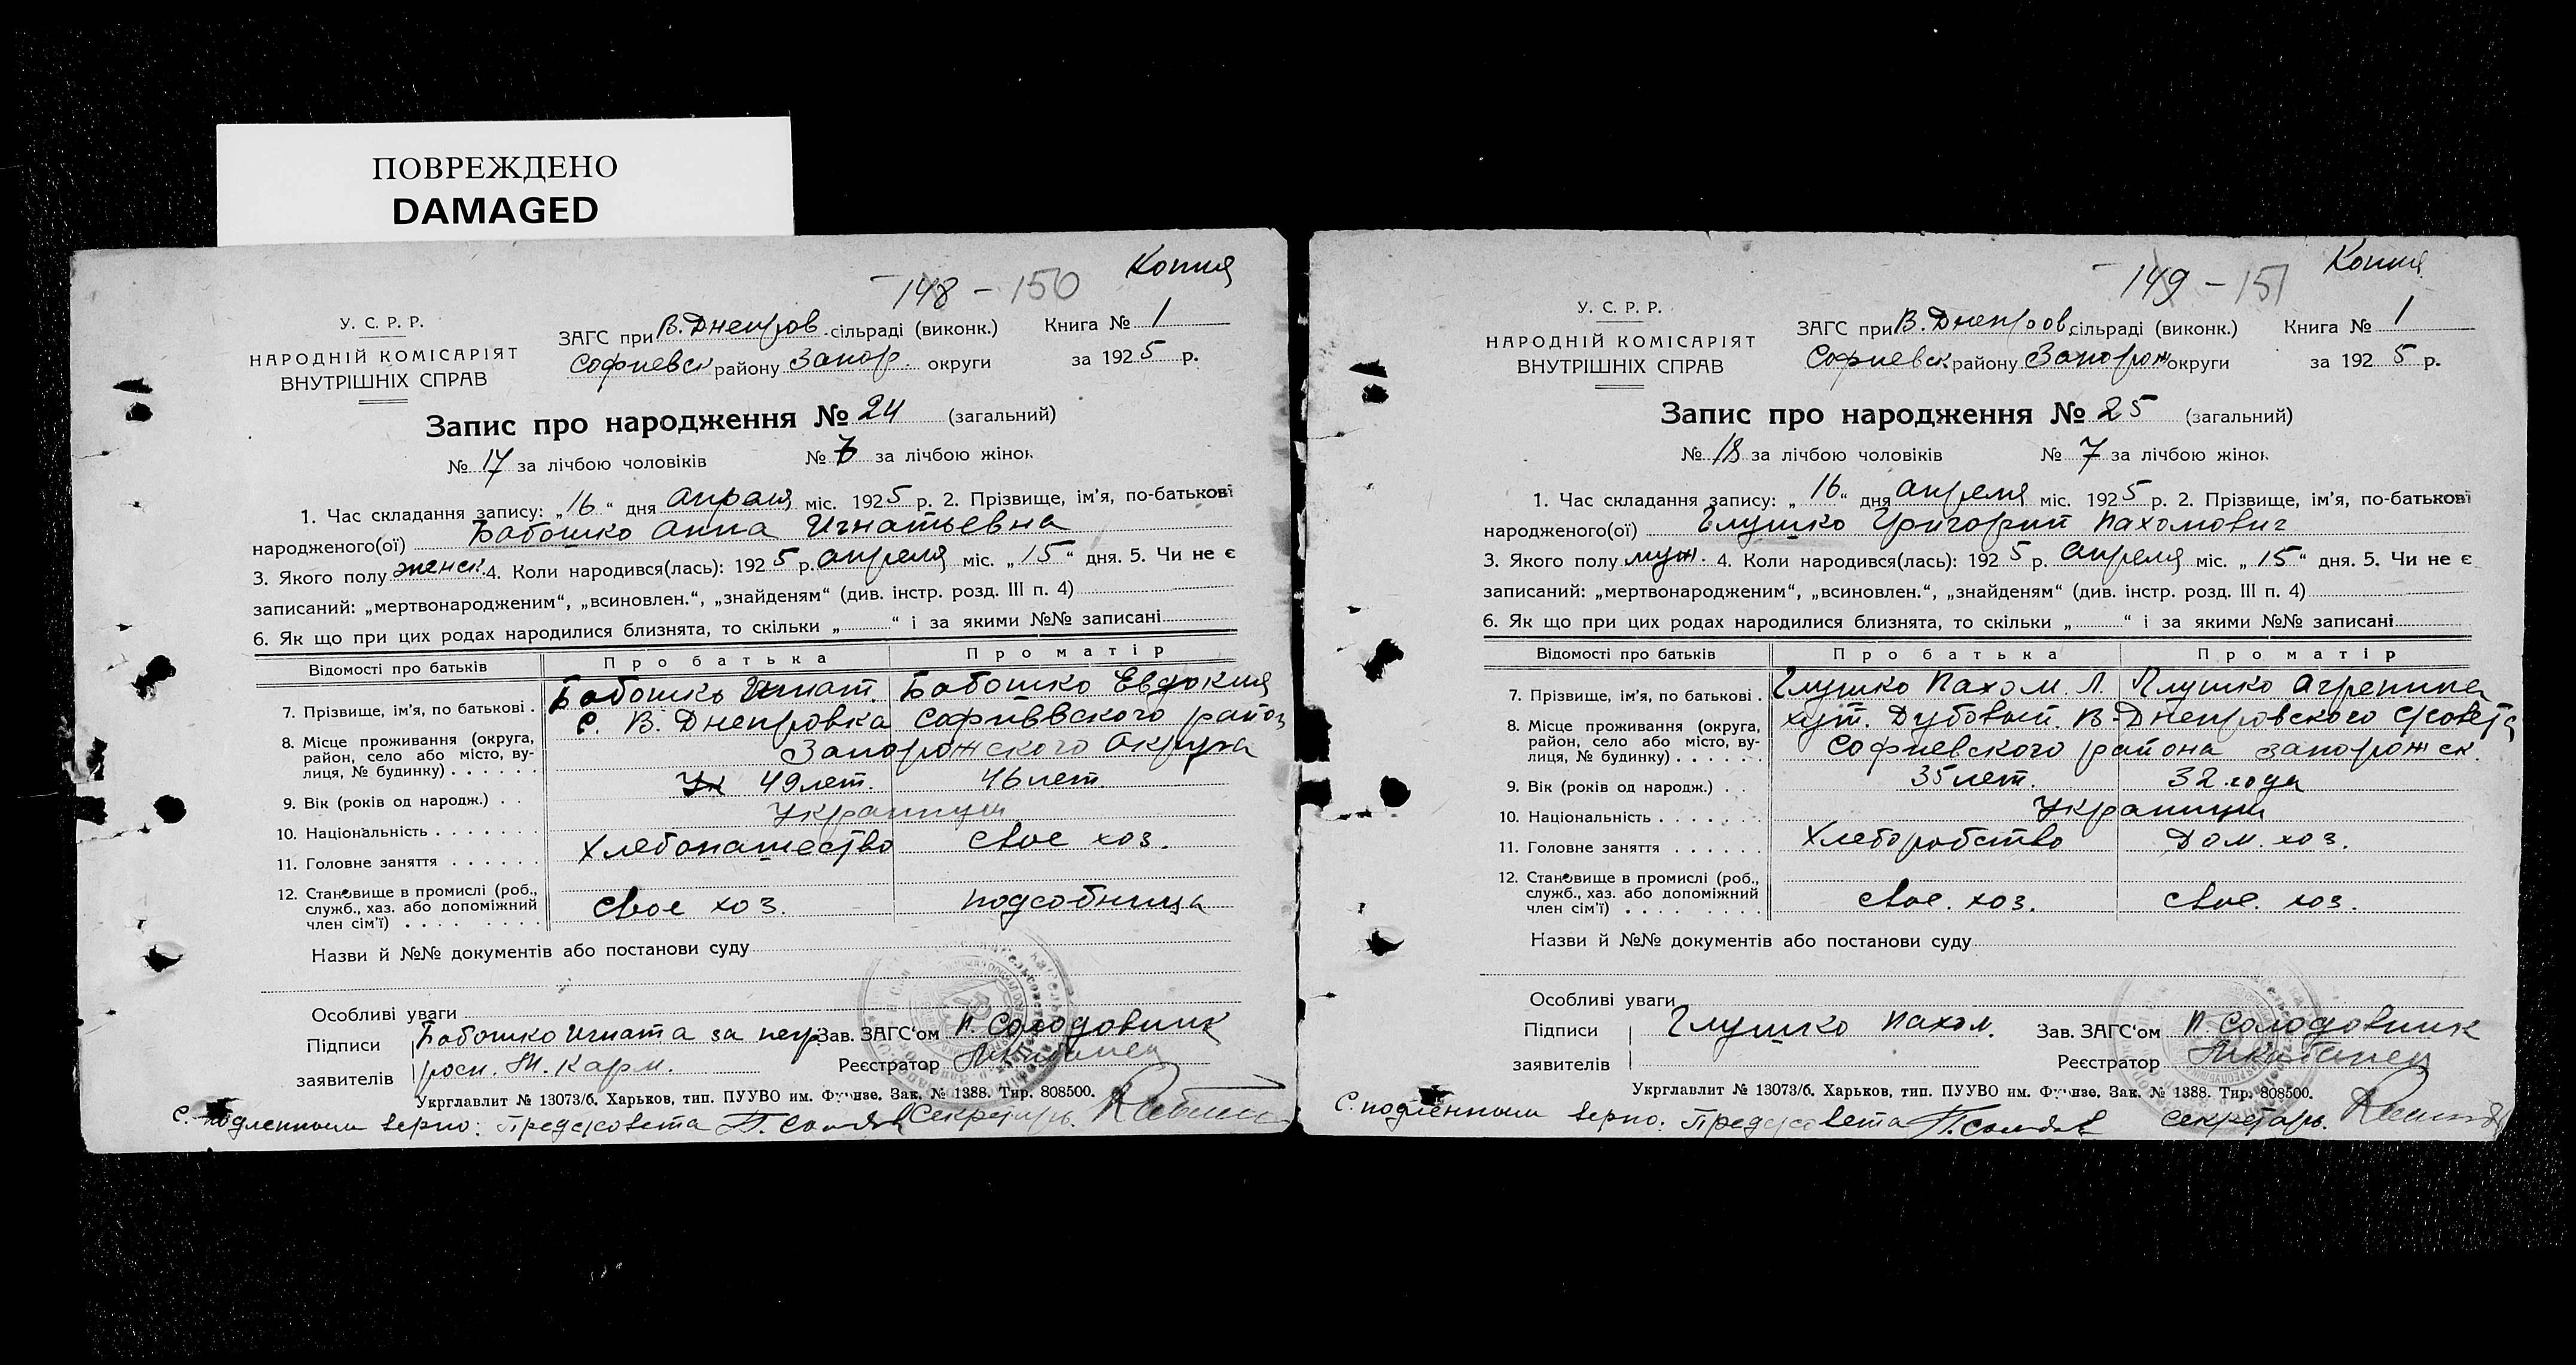 ПОВРЕЖДЕНО
DAMAGED
Копия
148 - 150
У. С. Р. Р.
НАРОДНІЙ КОМІСАРІЯТ
ВНУТРІШНІХ СПРАВ
ЗАГС при В. Днепров. сільраді (виконк.) Книга № 1
Софиевск району Запор. округи за 1925 р.
Запис про народження № 24 (загальний)
№ 17 за лічбою чоловіків № 7 за лічбою жінок
1. Час складання запису: „16“ дня апреля міс. 1925 р. 2. Прізвище, ім’я, по-батькові
народженого(ої) Бабошко Анна Игнатьевна
3. Якого полу женск 4. Коли народився(лась): 1925 р. апреля міс. „15“ дня. 5. Чи не є
записаний: „мертвонародженим“, „всиновлен.“, „знайденям“ (див. інстр. розд. III п. 4)
6. Як що при цих родах народилися близнята, то скільки „ “ і за якими №№ записані
Відомості про батьків Про батька Про матір
7. Прізвище, ім’я, по батькові . Бабошко Игнат. Бабошко Евдокия
8. Місце проживання (округа, район, село або місто, ву-лиця, № будинку) С. В. Днепровка Софиевского район
Запорожского Округа
9. Вік (років од народж.) 49 лет. 46 лет.
10. Національність Украинцы
11. Головне заняття Хлебопашество свое хоз.
12. Становище в промислі (роб., служб., хаз. або допоміжний член сім’ї) свое хоз. подсобница
Назви й №№ документів або постанови суду
Особливі уваги
Підписи Бабошко Игната за негр. Зав. ЗАГС‘ом П. Солодовник
заявителів росп. Карм. Реєстратор
Укрглавлит № 13073/б. Харьков, тип. ПУУВО им. Фрунзе. Зак. № 1388. Тир. 808500.
С подленным верно: Предсовета Секретарь.
Копия
149 - 151
У. С. Р. Р.
НАРОДНІЙ КОМІСАРІЯТ
ВНУТРІШНІХ СПРАВ
ЗАГС при В. Днепров. сільраді (виконк.) Книга № 1
Софиевск району Запорож округи за 1925 р.
Запис про народження № 25 (загальний)
№ 18 за лічбою чоловіків № 7 за лічбою жінок
1. Час складання запису: „16“ дня апреля міс. 1925 р. 2. Прізвище, ім’я, по-батькові
народженого(ої) Глушко Григорий Пахомович
3. Якого полу муж. 4. Коли народився(лась): 1925 р. апреля міс. „15“ дня. 5. Чи не є
записаний: „мертвонародженим“, „всиновлен.“, „знайденям“ (див. інстр. розд. III п. 4)
6. Як що при цих родах народилися близнята, то скільки „ “ і за якими №№ записані
Відомості про батьків Про батька Про матір
7. Прізвище, ім’я, по батькові . Глушко Пахом. Л. Глушко Агрепина
8. Місце проживання (округа, район, село або місто, ву-лиця, № будинку) хут. Дубовый. В-Днепровского с/совета
Софиевского района запорожск.
9. Вік (років од народж.) 35 лет. 32 года
10. Національність Украинцы
11. Головне заняття Хлеборобство Дом. хоз.
12. Становище в промислі (роб., служб., хаз. або допоміжний член сім’ї) свое. хоз. свое. хоз.
Назви й №№ документів або постанови суду
Особливі уваги
Підписи Глушко Пахом. Зав. ЗАГС‘ом П. Солодовник
заявителів Реєстратор
Укрглавлит № 13073/б. Харьков, тип. ПУУВО им. Фрунзе. Зак. № 1388. Тир. 808500.
С подленным верно: Предсовета Секретарь.